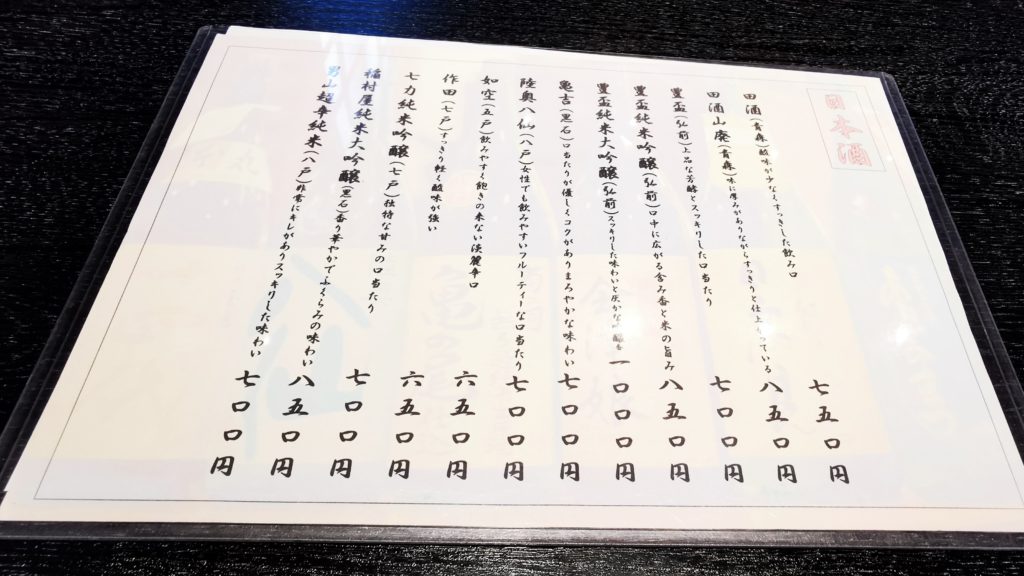 日本酒
田酒(青森)酸味が少なくすっきりした飲み口 七五〇円
田酒山廃(青森)味に厚みがありながらすっきりと仕上がっている 八五〇円
豊盃(弘前)上品な芳醇とスッキリした口当たり 七〇〇円
豊盃純米吟醸(弘前)口中に広がる含み香と米の旨み 八五〇円
豊盃純米大吟醸(弘前)スッキリした味わいと仄かな 一〇〇〇円
亀吉(黒石)口当たりが優しくコクがありまろやかな味わい 七〇〇円
陸奥八仙(八戸)女性でも飲みやすいフルーティーな口当たり 七〇〇円
如空(五戸)飲みやすく飽きの来ない淡麗辛口 六五〇円
作田(七戸)すっきり軽く酸味が強い 六五〇円
七力純米吟醸(七戸)独特な甘みの口当たり 七〇〇円
稲村屋純米大吟醸(黒石)香り華やかでふくらみの味わい 八五〇円
男山超辛純米(八戸)非常にキレがありスッキリした味わい 七〇〇円